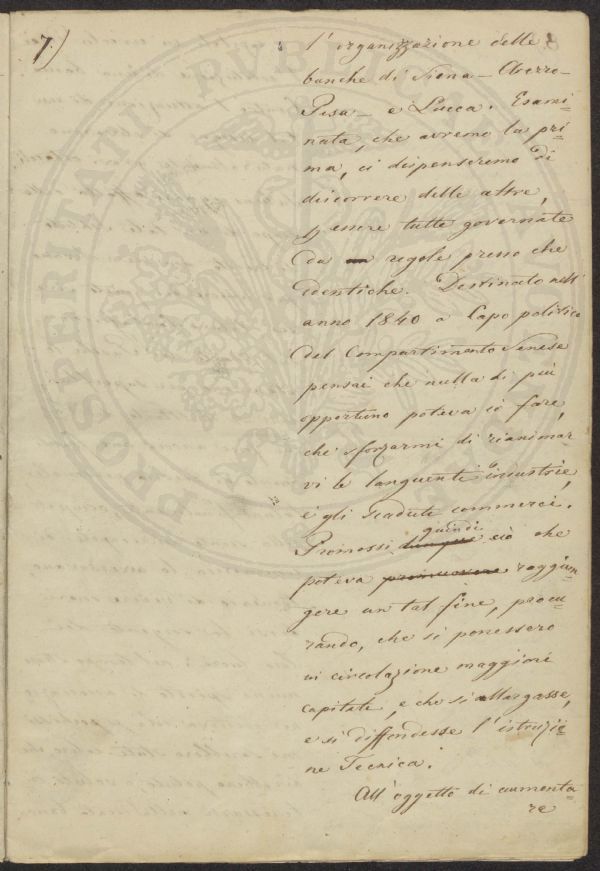 7)
l'organizzazione delle
banche di Siena - Arezzo -
Pisa - e Lucca. Esami-
nata, che avremo la pri-
ma, ci dispenseremo di
discorrere delle altre,
essere tutte governate
da regole presso che
identiche. Destinato nell'
anno 1840 a Capo politico
del Compartimento Senese
pensai che nulla di più
opportuno poteva io fare,
che sforzarmi di rianimar-
vi le languenti industrie,
e gli scaduti commerci.
quindi
Promossi dunque ciò che
poteva promuovere raggiun-
gere un tal fine, procu-
rando, che si ponessero
in circolazione maggiori
capitali, e che si allargasse,
e si diffondesse l'istruzio-
ne Tecnica.
All'oggetto di aumenta-
re
PROSPERITATI PUBLICAE